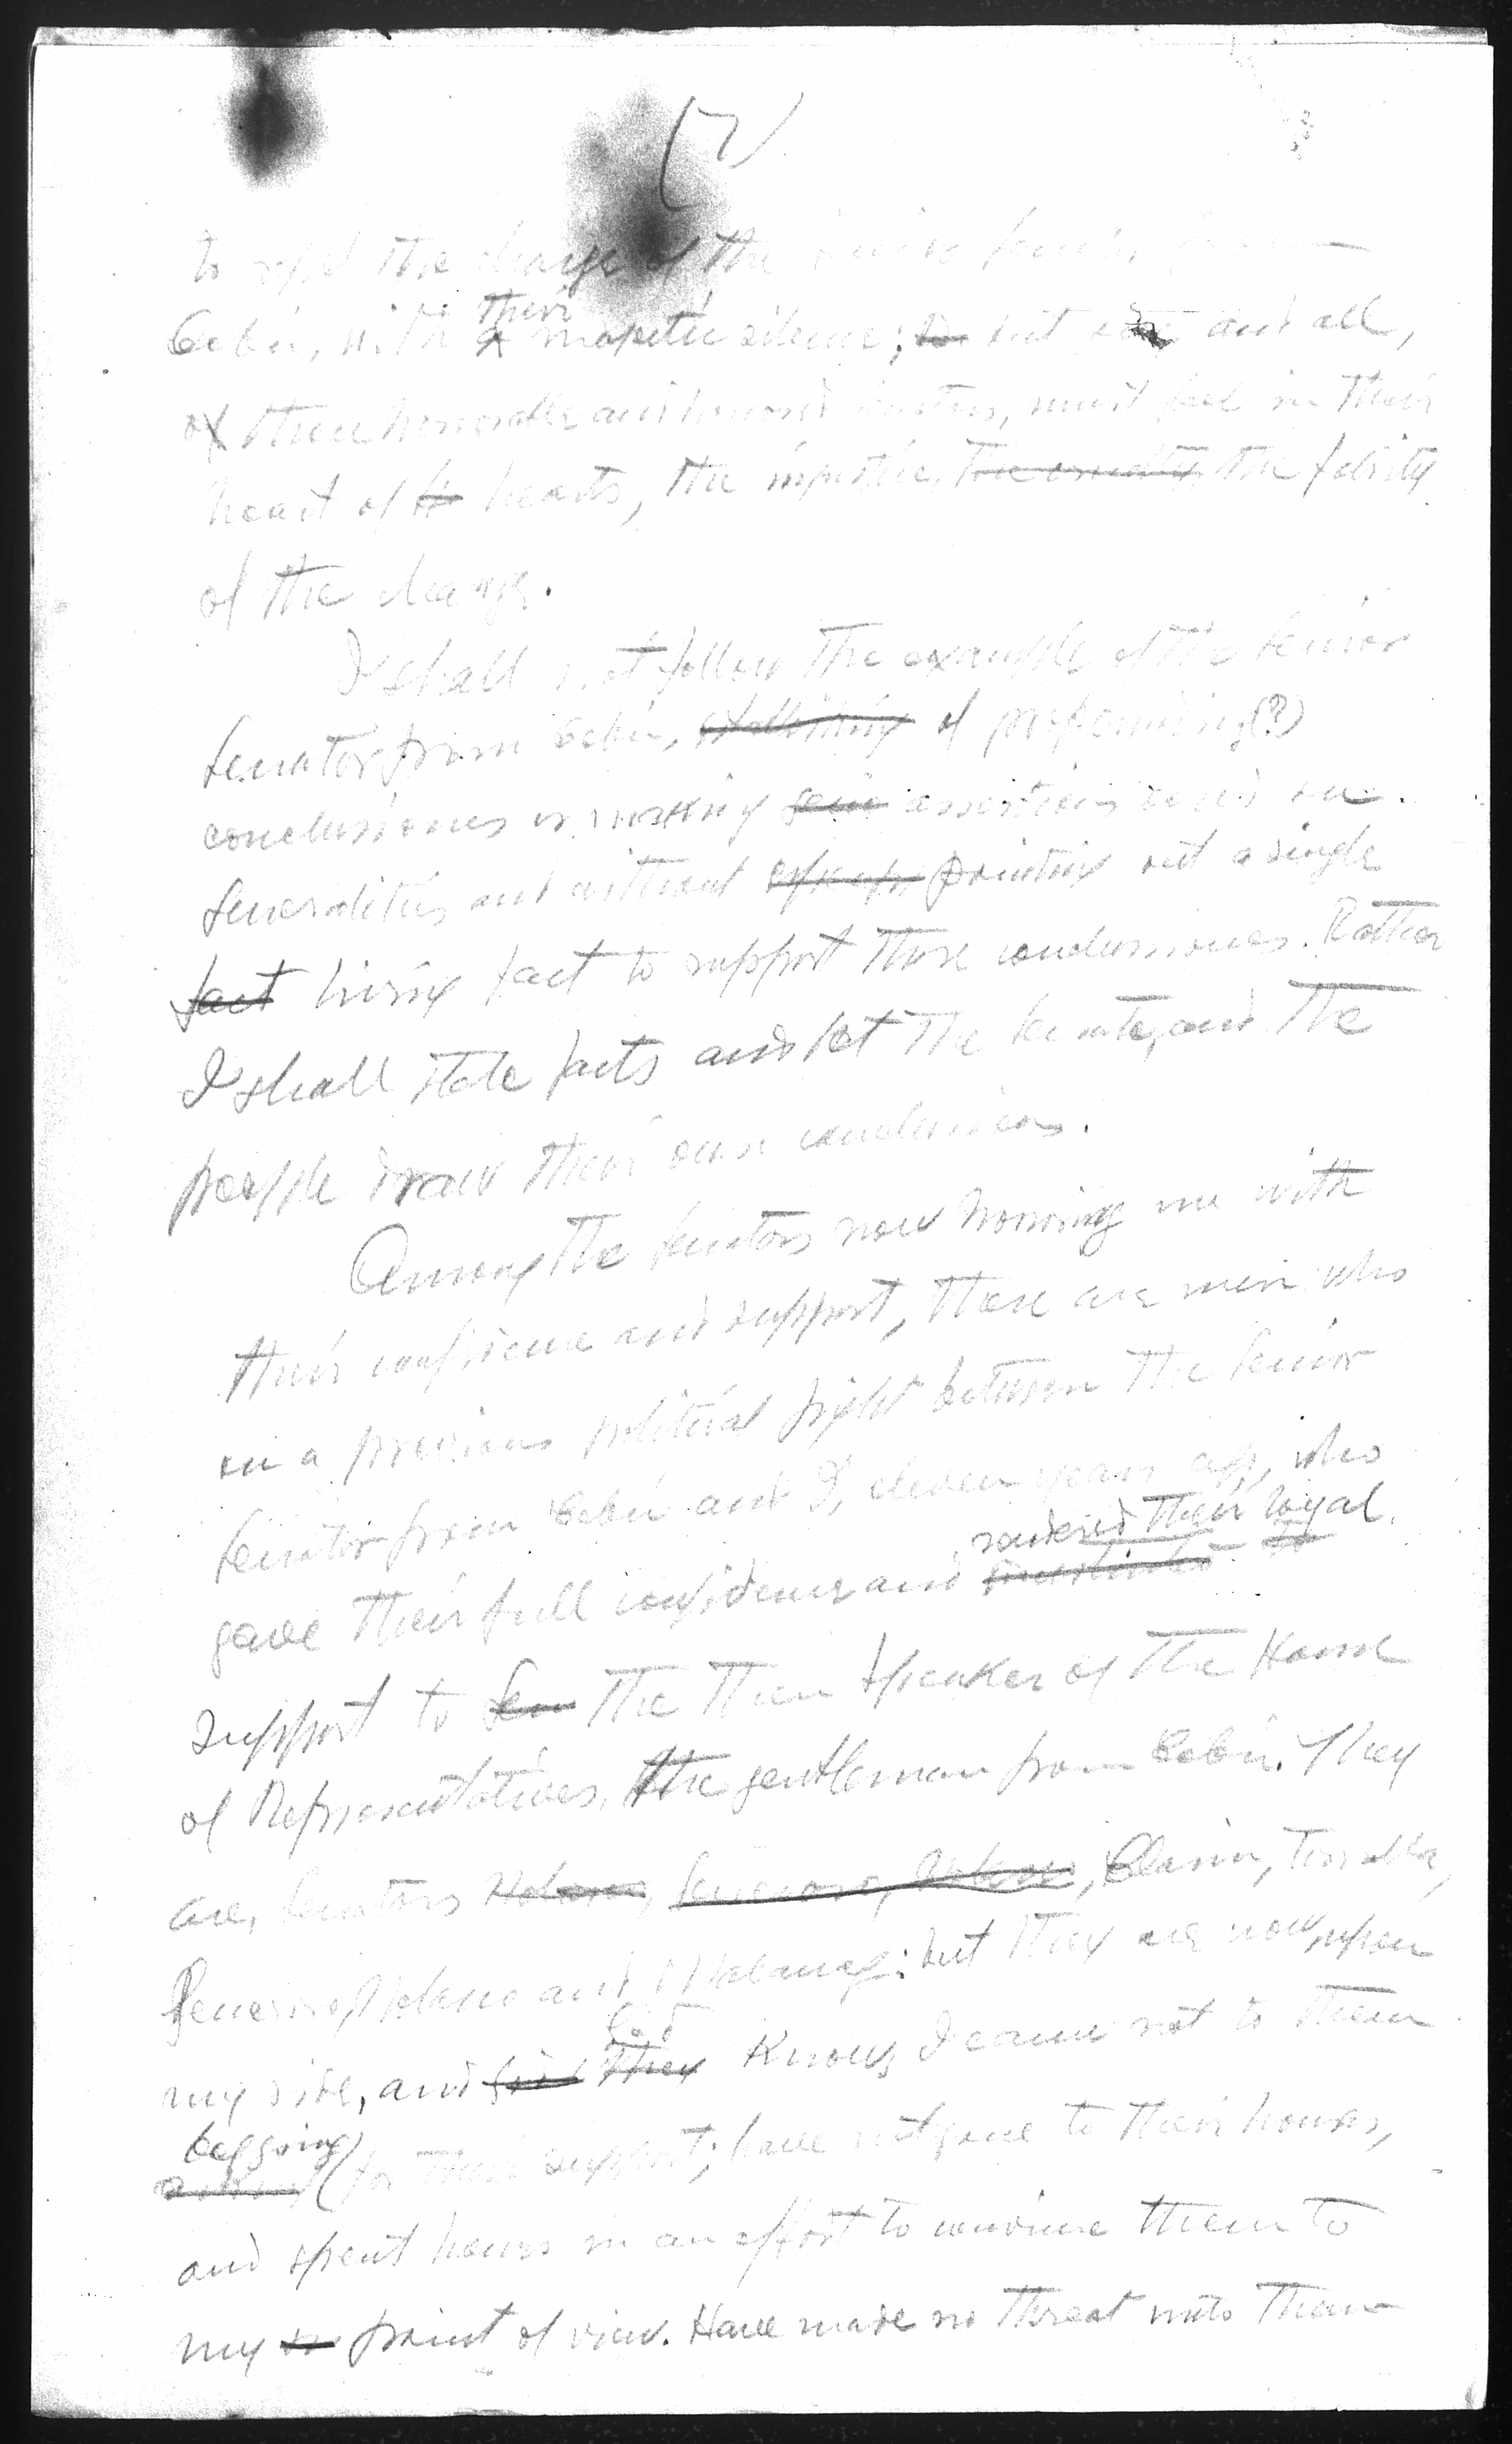 (7)
to repel the charge of the senior Senator from
Cebú, with their majestic silence; but one and all,
of these honorable and honored Senators, must feel in their
heart of hearts, the injustice, the cruelty, the falsity
of the charge.
I shall not follow the example of the Senior
Senator from Cebú, of (?)
conclusiones or making assertions and on
generalities and without pointing out a single
fact living fact to support those conclusiones. Rather
I shall state facts and let the Senate, and the
people draw their own conclusions.
Among the Senators now honoring me with
their confidence and support, there are men who
on a previous political fight between the Senior
Senator from Cebú and I, eleven years ago, who
gave their full confidence and rendered their loyal
support to Sen the then Speaker of the House
of Representatives, the gentleman from Cebú. They
are, Senators Clarin,
Generoso, and Mabanag: but they are now upon
my side, and God they knows I came not to them
begging for their support; have not gone to their houses,
and spent hours in an effort to convince them to
my point of view. Have made no threat unto them